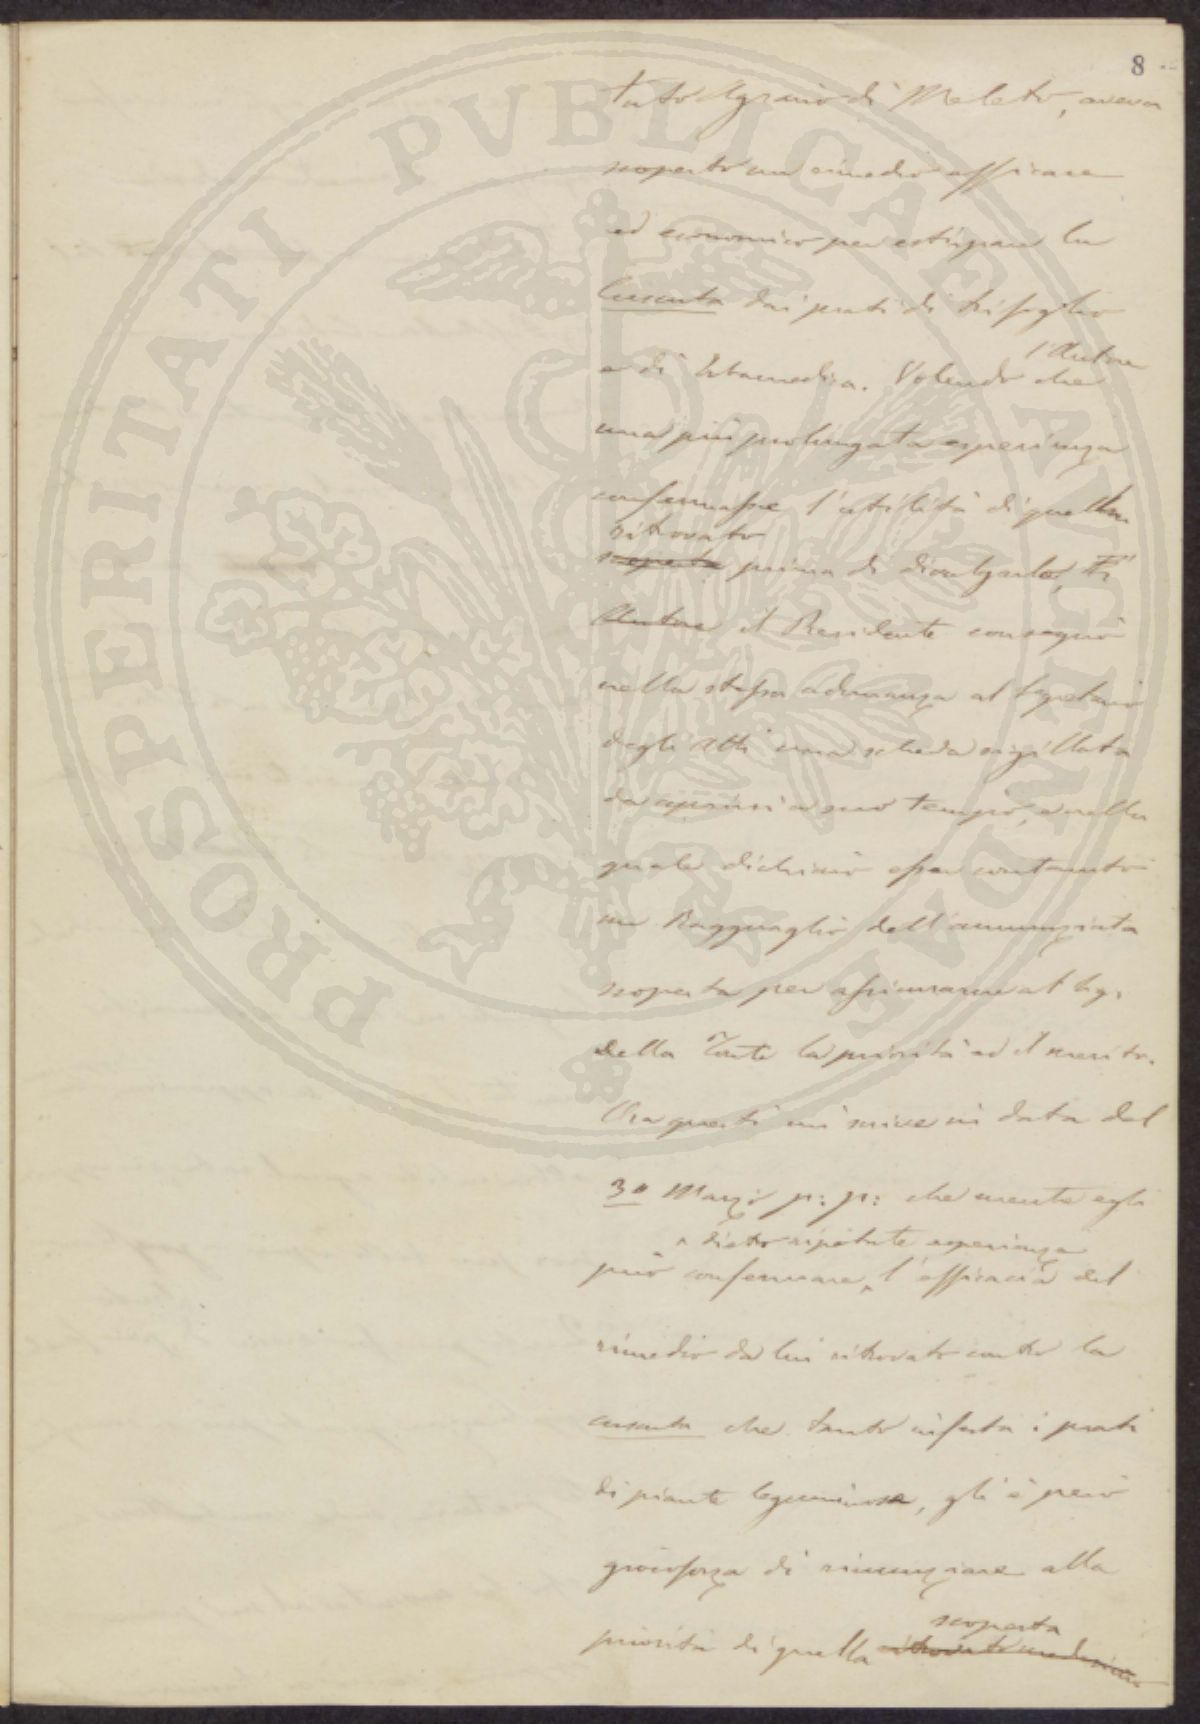 8
tuto Agrario di Meleto, aveva
scoperto un rimedio efficace
ed economico per estirpare la
Cuscuta dai prati di trifoglio
l'Autore
e di Erbamedica. Volendo che
una più prolungata esperienza
confermasse l'utilità di quello
ritrovato
scoperta prima di divulgarlo,
Autore il Presidente consegnò
nella stessa adunanza al Segretario
degli Atti una scheda sigillata
da aprirsi a suo tempo, e nella
quale dichiarò esser contenuto
un Ragguaglio dell'annunziata
scoperta per assicurarne al Sig.
della Fonte la priorità ed il merito.
Ora questi mi scrive in data del
30 Marzo p: p: che mentre egli
dietro ripetute esperienze
può confermare, l'efficacia del
rimedio da lui ritrovato contro la
cuscuta che tanto infesta i prati
di piante leguminose, gli è però
giocoforza di rinunziare alla
scoperta
priorità di quella ritrovato medesimo
PROSPERITATI PVBLICAE AVGENDAE